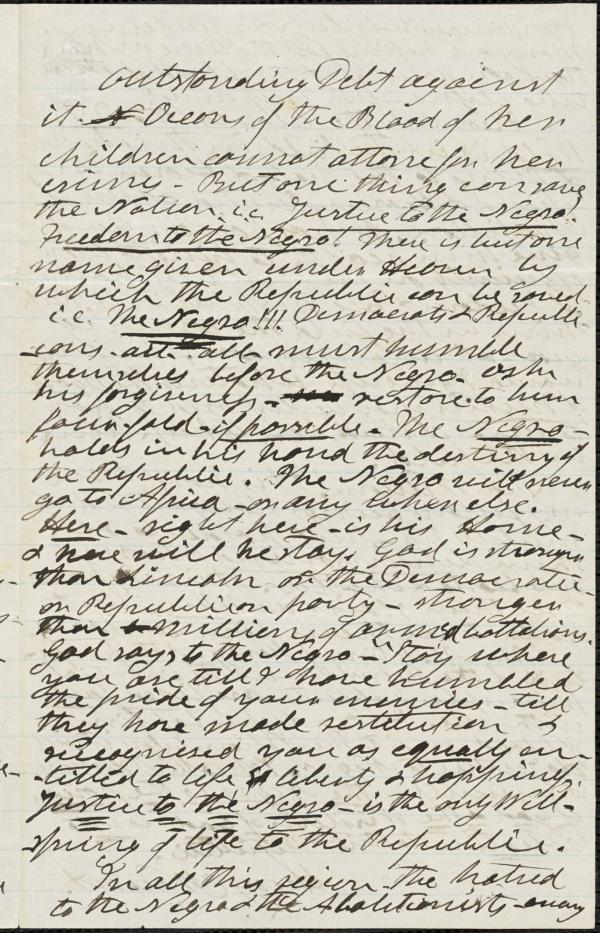 outstanding Debt against
it. Oceans of the Blood of her
children cannot attone for her
crimes - But one thing can save
the Nation i.e. Justice to the Negro!
Freedom to the Negro! There is but one
name given under Heaven by
which the Republic can be saved -
i.e. The Negro!!! Democrats & Republi-
cans - all - must humble
themselves before the Negro - ask
his forgiveness - restore to him
four-fold - if possible - The Negro -
holds in his hand the destiny of
the Republic. The Negro will never
go to Africa - or any where else.
Here - right here - is his Home -
& here will he stay. God is stronger
than Lincoln or the Democratic -
or Republican party - stronger
than million of armed battalions.
God says to the Negro - "Stay where
you are till I have humbled
the pride of your enemies - till
they have made restitution &
recognised you as equally en-
-titled to life liberty & happiness.
Justice to the Negro - is the only Well-
spring of life to the Republic.
In all this region - the hatred
to the Negro & the Abolitionists - among